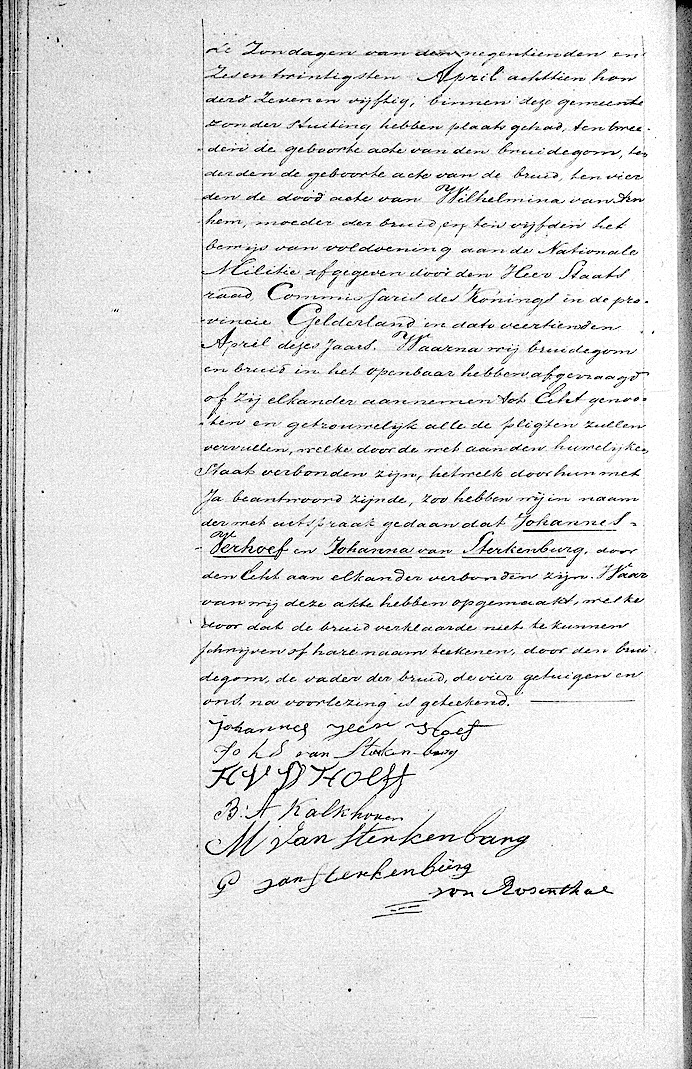 de Zondagen van den negentienden en
Zes en twintigsten April achttien hon
derd Zeven en vijftig, binnen deze gemeente
zonder stuiting hebben plaats gehad, ten twee-
den de geboorte acte van den bruidegom, ten
derden de geboorte acte van de bruid, ten vier
den de dood acte van Wilhelmina van Arn
hem, moeder der bruid, en ten vijfden het
bewijs van voldoening aan de Nationale
Militie afgegeven door den Heer Staats
raad, Commissaris des Konings in de pro-
vincie Gelderland in dato veertienden
April dezes Jaars. Waarna wij bruidegom
en bruid in het openbaar hebben afgevraagd
of zij elkander aannemen tot Echt genoo-
ten en getrouwelijk alle de pligten zullen
vervullen, welke door de wet aan den huwelijken
Staat verbonden zijn, hetwelk door hun met
Ja beantwoord zijnde, zoo hebben wij in naam
der wet uitspraak gedaan dat Johannes
Verhoef en Johanna van Sterkenburg, door
den Echt aan elkander verbonden zijn. Waar
van wij deze akte hebben opgemaakt, welke
door dat de bruid verklaarde niet te kunnen
schrijven of hare naam teekenen, door den brui
degom, de vader der bruid, de vier getuigen en
ons, na voorlezing is geteekend.
Johannes Hoef
Joh S van Sterkenburg
H V D Hoeff
B. A Kalkhoven
M van Sterkenburg
G van Sterkenburg
von Rosenthal